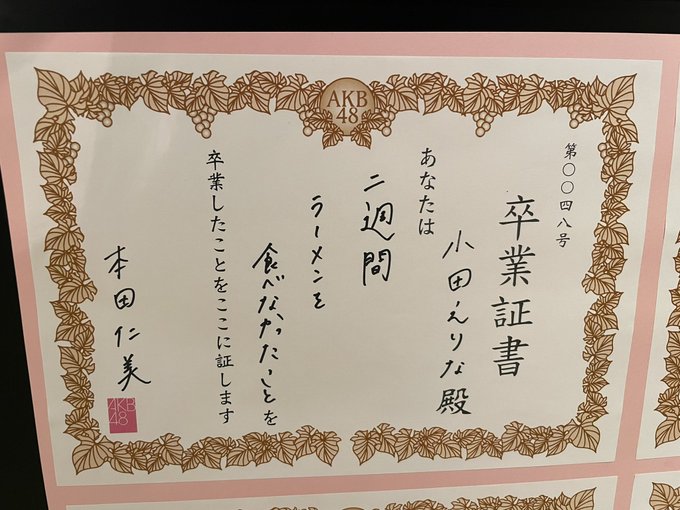 AKB
48
第〇〇四八号
卒業証書
小田えりな殿
あなたは
二週間
ラーメンを
食べなかったことを
卒業したことをここに証します
本田仁美
AKB
48